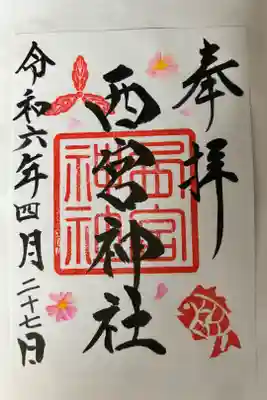 奉拝
西宮神社
令和六年四月二十七日